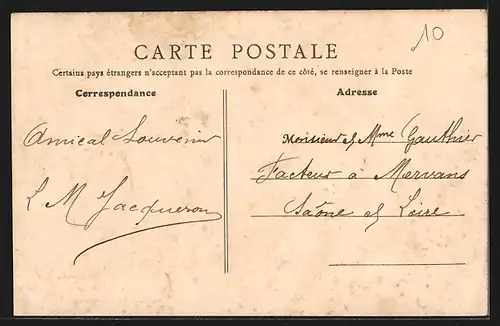 10
CARTE POSTALE
Certains pays étrangers n'acceptant pas la correspondance de ce côté, se renseigner à la Poste
Correspondance
Adresse
Amical Souvenir
L M Jacqueron
Monsieur et Mme Gauthier
Facteur à Mervans
Saône et Loire